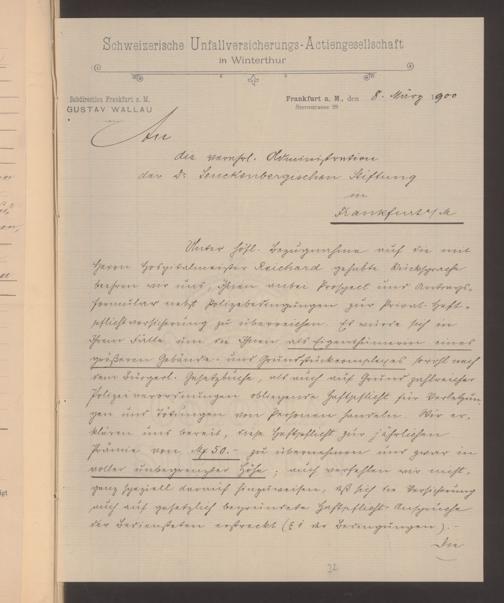 Schweizerische Unfallversicherungs-Actiengesellschaft
in Winterthur
Subdirection Frankfurt a. M.
GUSTAV WALLAU
Frankfurt a. M., den 8. März 1900
Sternstrasse 29
An
die verehrl. Administration
der Dr. Senckenbergischen Stiftung
in
Frankfurt a/M
Unter höfl. Bezugnahme auf die mit
Herrn Hospitalmeister Reichard gehabte Rücksprache
beehren wir uns, Ihnen anbei Prospect und Antrags-
formular nebst Polizebedingungen zur Privat-Haft-
pflichtversicherung zu überreichen. Es würde sich in
Ihrem Falle, um die Ihnen als Eigentümerin eines
größeren Gebäude- und Grundstückcomplexes sowohl nach
dem Bürgerl. Gesetzbuche, als auch auf Grund zahlreicher
Polizeiverordnungen obliegende Haftpflicht für Verletzun-
gen und Tötungen von Personen handeln. Wir er-
klären uns bereit, diese Haftpflicht zur jährlichen
Prämie von M 50.- zu übernehmen und zwar in
voller unbegrenzter Höhe; auch verfehlen wir nicht,
ganz speziell darauf hinzuweisen, daß sich die Versicherung
auch auf gesetzlich begründete Haftpflicht-Ansprüche
der Bediensteten erstreckt (§ 1 der Bedingungen).-
Die